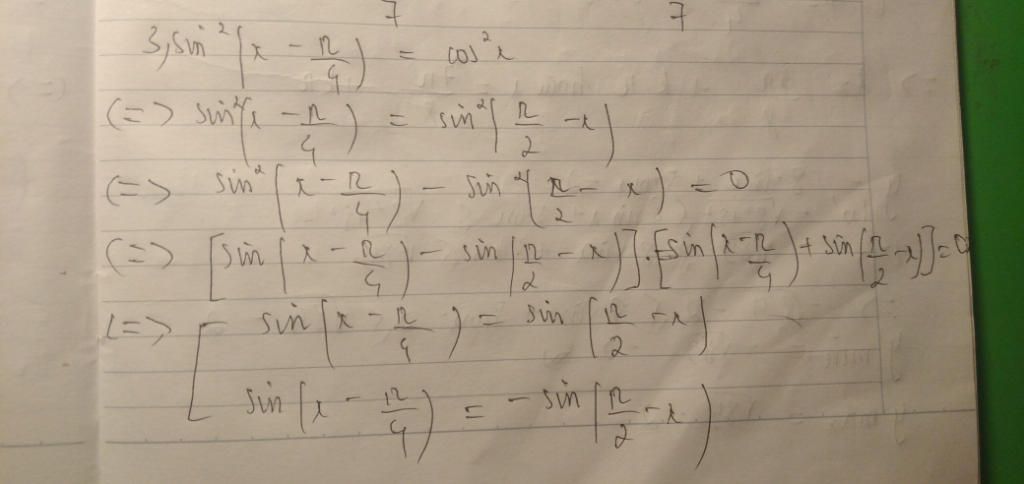 7 7
3, sin²(x - π/4) = cos²x
(=> sin²(x - π/4) = sin²(π/2 - x)
(=> sin²(x - π/4) - sin²(π/2 - x) = 0
(=> [sin(x - π/4) - sin(π/2 - x)].[sin(x - π/4) + sin(π/2 - x)] = 0
(=> [ sin(x - π/4) = sin(π/2 - x)
sin(x - π/4) = - sin(π/2 - x)